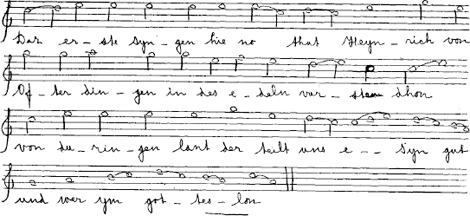 Daz er - ste syn - gen hie nu that Heyn - rich von
Of - ter din - gen in des e - deln vur - sten dhon
von du - rin - gen lant der teilt uns e - - syn gut
und wer ym got - tes - lon